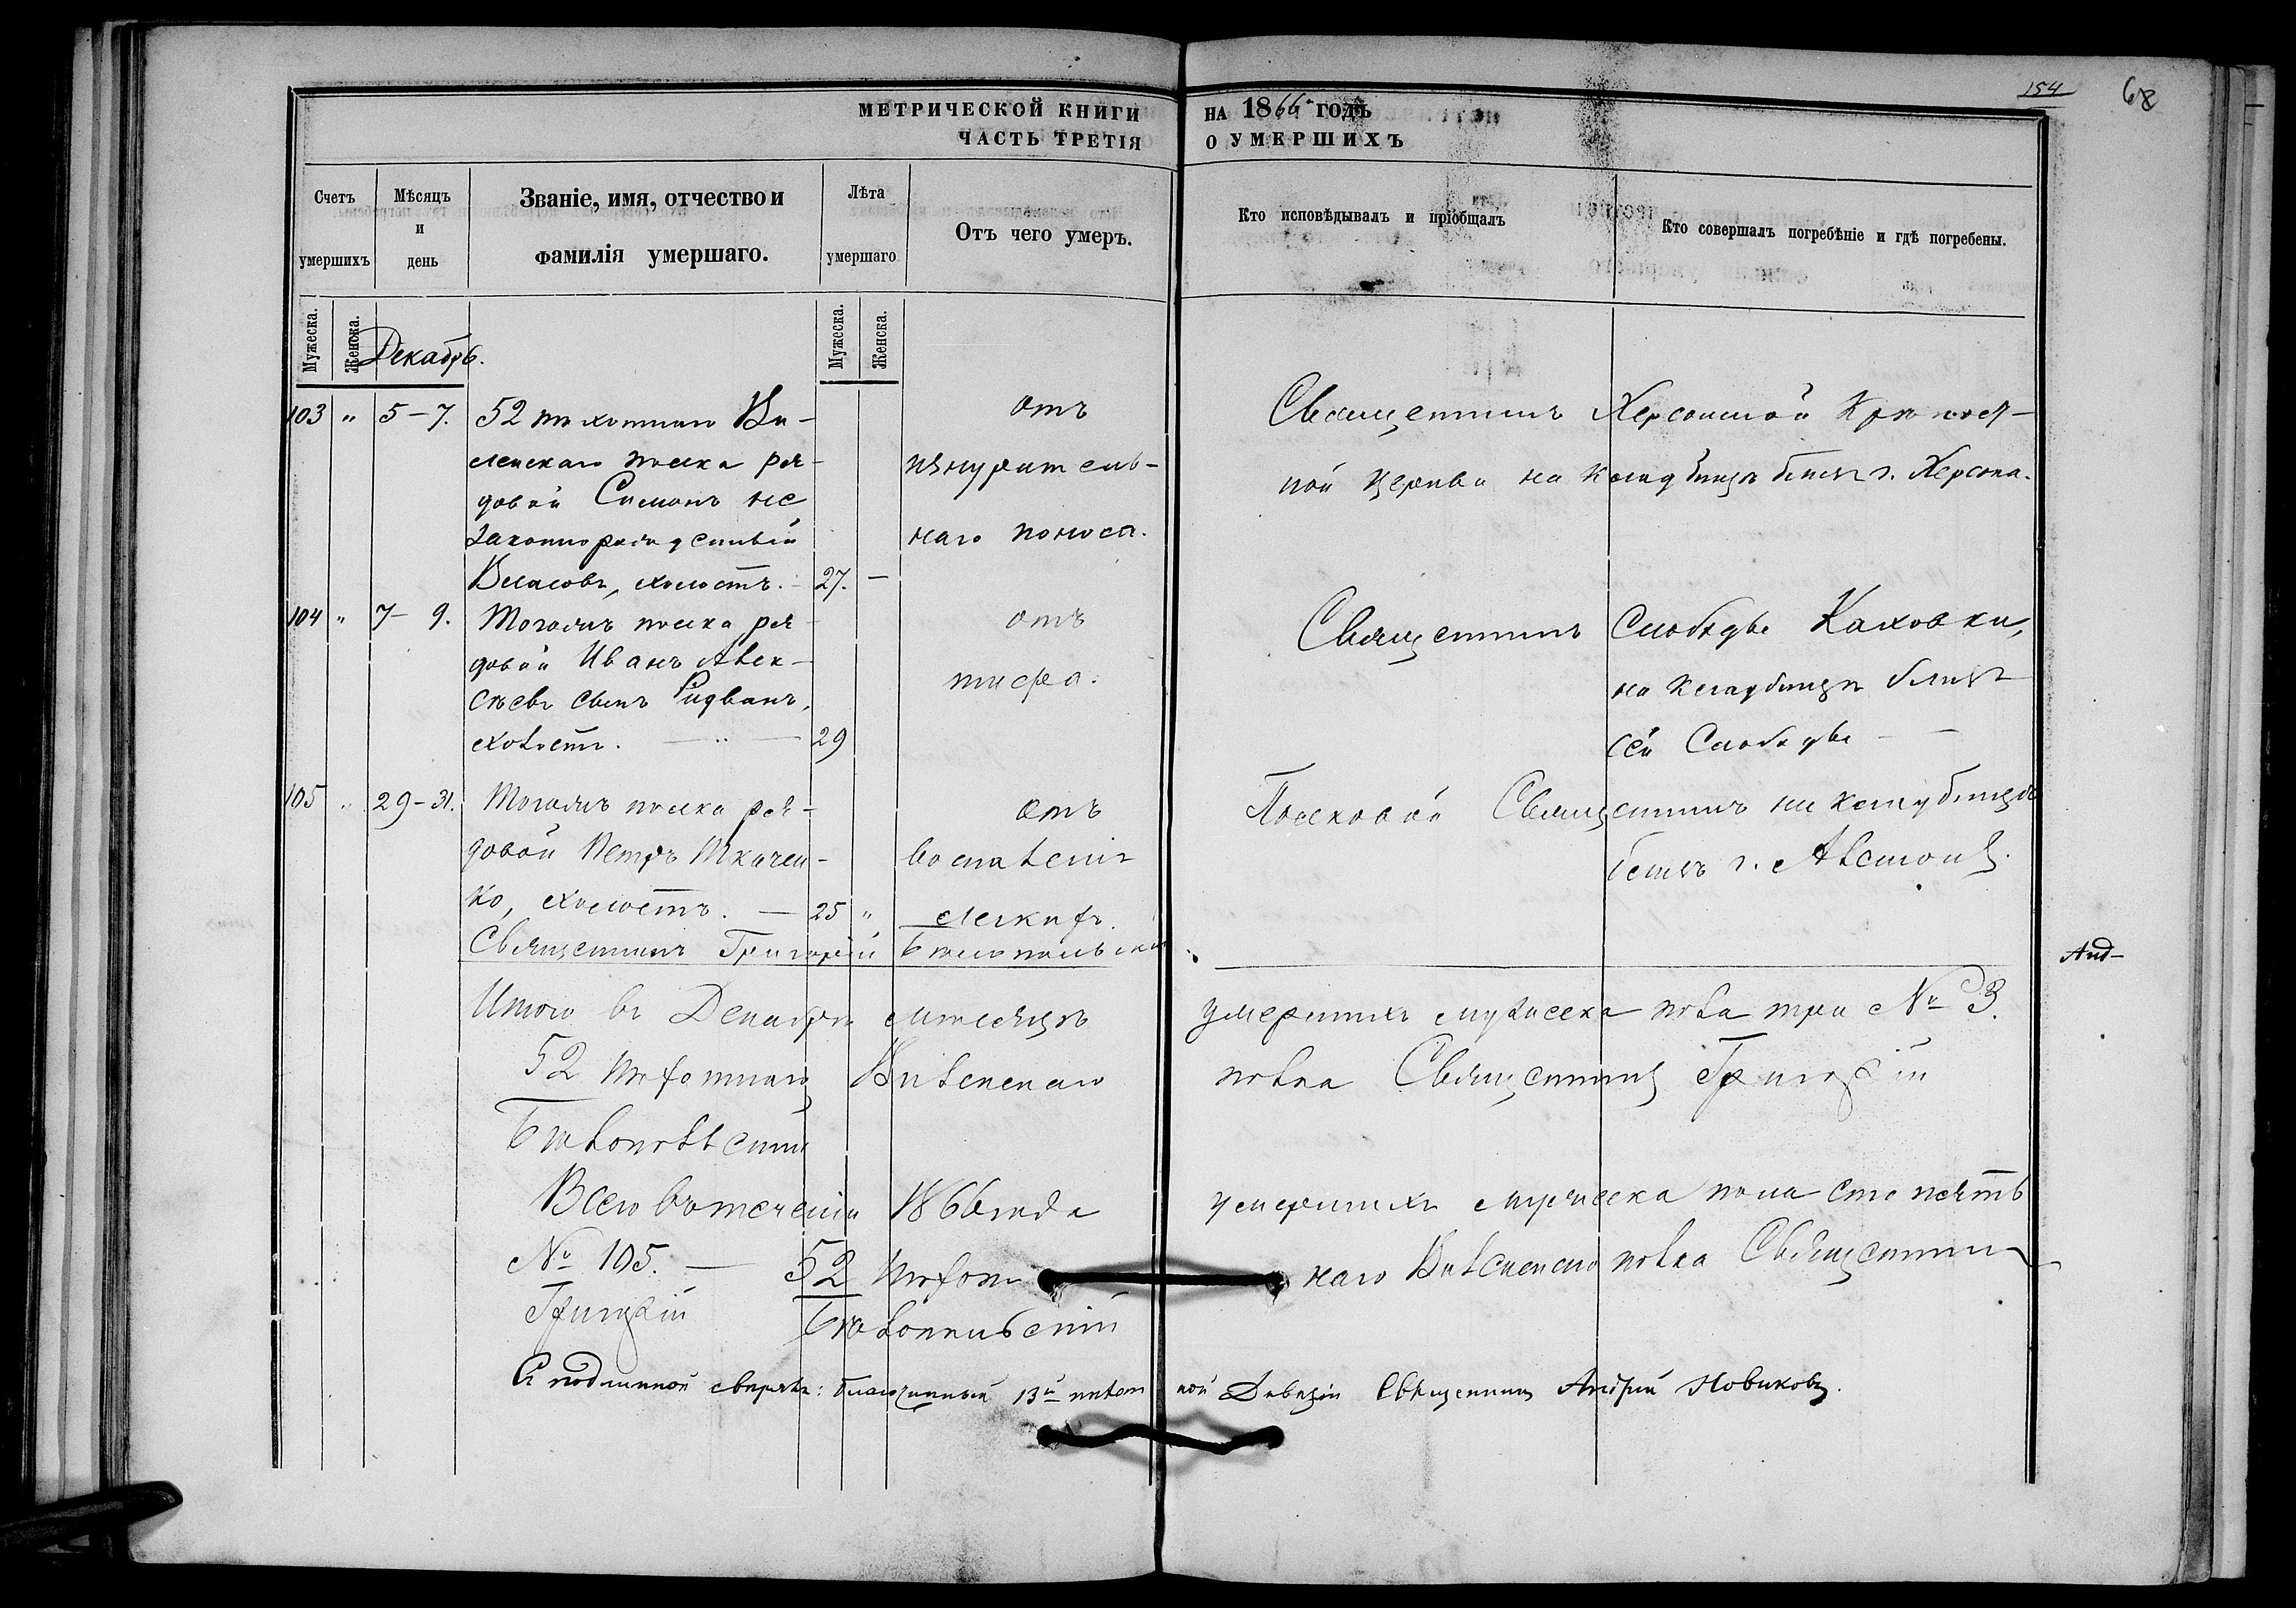 154
68
МЕТРИЧЕСКОЙ КНИГИ НА 1866 ГОДЪ
ЧАСТЬ ТРЕТІЯ О УМЕРШИХЪ
Счетъ умершихъ
Мѣсяцъ и день
Званіе, имя, отчество и фамилія умершаго.
Лѣта умершаго
Отъ чего умеръ.
Кто исповѣдывалъ и пріобщалъ
Кто совершалъ погребѣніе и гдѣ погребены.
Мужеска.
Женска.
Мужеска.
Женска.
Декабрь.
103 " 5-7. 52 пѣхотнаго Ви-
ленскаго полка ря-
довой Симонъ не
законнорожденный
Власовъ, холостъ. - 27. -
отъ
изнуритель-
наго поноса.
Священникъ Херсонской Крѣпост-
ной церкви на кладбищѣ близъ г. Херсона.
104 " 7-9. Тогожъ полка ря-
довой Иванъ Алек-
сѣевъ сынъ Ридванъ,
холостъ. - " - 29
отъ
тифа.
Священникъ Слободы Каховки,
на кладбищѣ близъ
сей Слободы - -
105 " 29-31. Тогожъ полка ря-
довой Петръ Ткачен-
ко, холостъ. - 25 "
отъ
воспаленія
легкихъ.
Полковой Священникъ на кладбищѣ
близъ г. Алешокъ.
Священникъ Григорій Бѣлопольскій.
Анд-
Итого въ Декабрѣ мѣсяцѣ умершихъ мужеска пола три № 3.
52 пѣхотнаго Виленскаго полка Священникъ Григорій
Бѣлопольскій
Всего въ теченіи 1866 года умершихъ мужеска пола сто пять
№ 105. - 52 пѣхотнаго Виленскаго полка Священникъ
Григорій Бѣлопольскій
Съ подлинной свѣрялъ: благочинный 13й пѣхотной Дивизіи Священникъ Андрей Новиковъ.